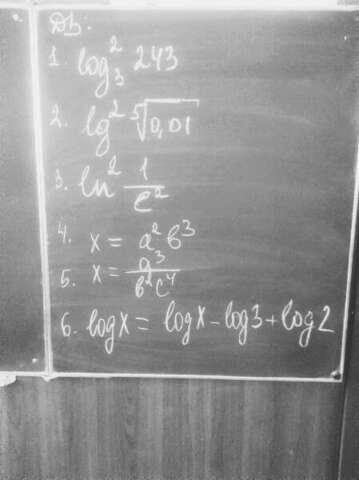 Dh:
1. log₃² 243
2. lg² ⁵√0,01
3. ln² 1/e²
4. x = a² b³
5. x = a³/b²c⁴
6. log x = log x - log 3 + log 2